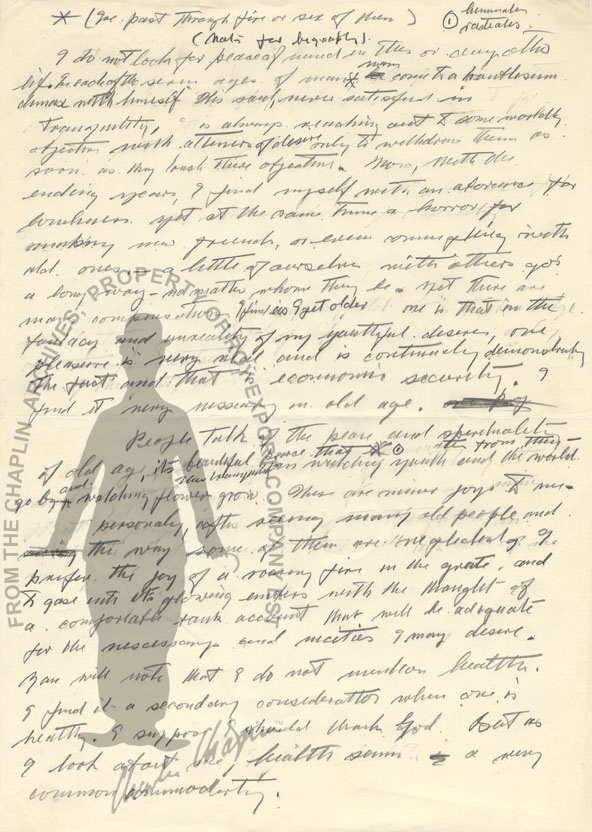 * (Ive past through five or six of them) ① humanates radiates.
(Note for biography).
I do not look for peace of mind in this or any other
life. In each of the seven ages of man * man comes to a troublesome
climax with himself his soul, never satisfied in
tranquility, is always reaching out to some worldly
objective with attenas of desire only to withdraw them as
soon as they touch these objectives. Now, with the
ending years, I find myself with an aborance for
loneliness yet at the same time a horror for
making new friends, or even comunicating with
old ones - a little of ourselves with others goes
a long way - no matter whome they be. Yet there are
many compensations I find as I get older one is that in the
fantacy and unreality of my youthful desires, one
pleasure is very real and is continualy demonstrating
the fact and that is economic security. I
find it very nessesary in old age.
People talk of the peace and spirituality
of old age, its beautiful peace that ① them from them -
new tranquility from watching youth and the world
go by and watching flowers grow. These are minor joys to me -
personaly, after seeing many old people and
the way some of them are neglected, I
prefer the joy of a roaring fire in the grate, and
to gase into its glowing embers with the thought of
a comfortable bank account that will be adaquate
for the nescessarys and niceties I may desire.
You will note that I do not mention health.
I find it a secondary consideration when one is
healthy. I suppose I should thank God. But as
I look about me health seems a very
common commoderty.
FROM THE CHAPLIN ARCHIVES, PROPERTY OF ROY EXPORT COMPANY EST
Charlie Chaplin